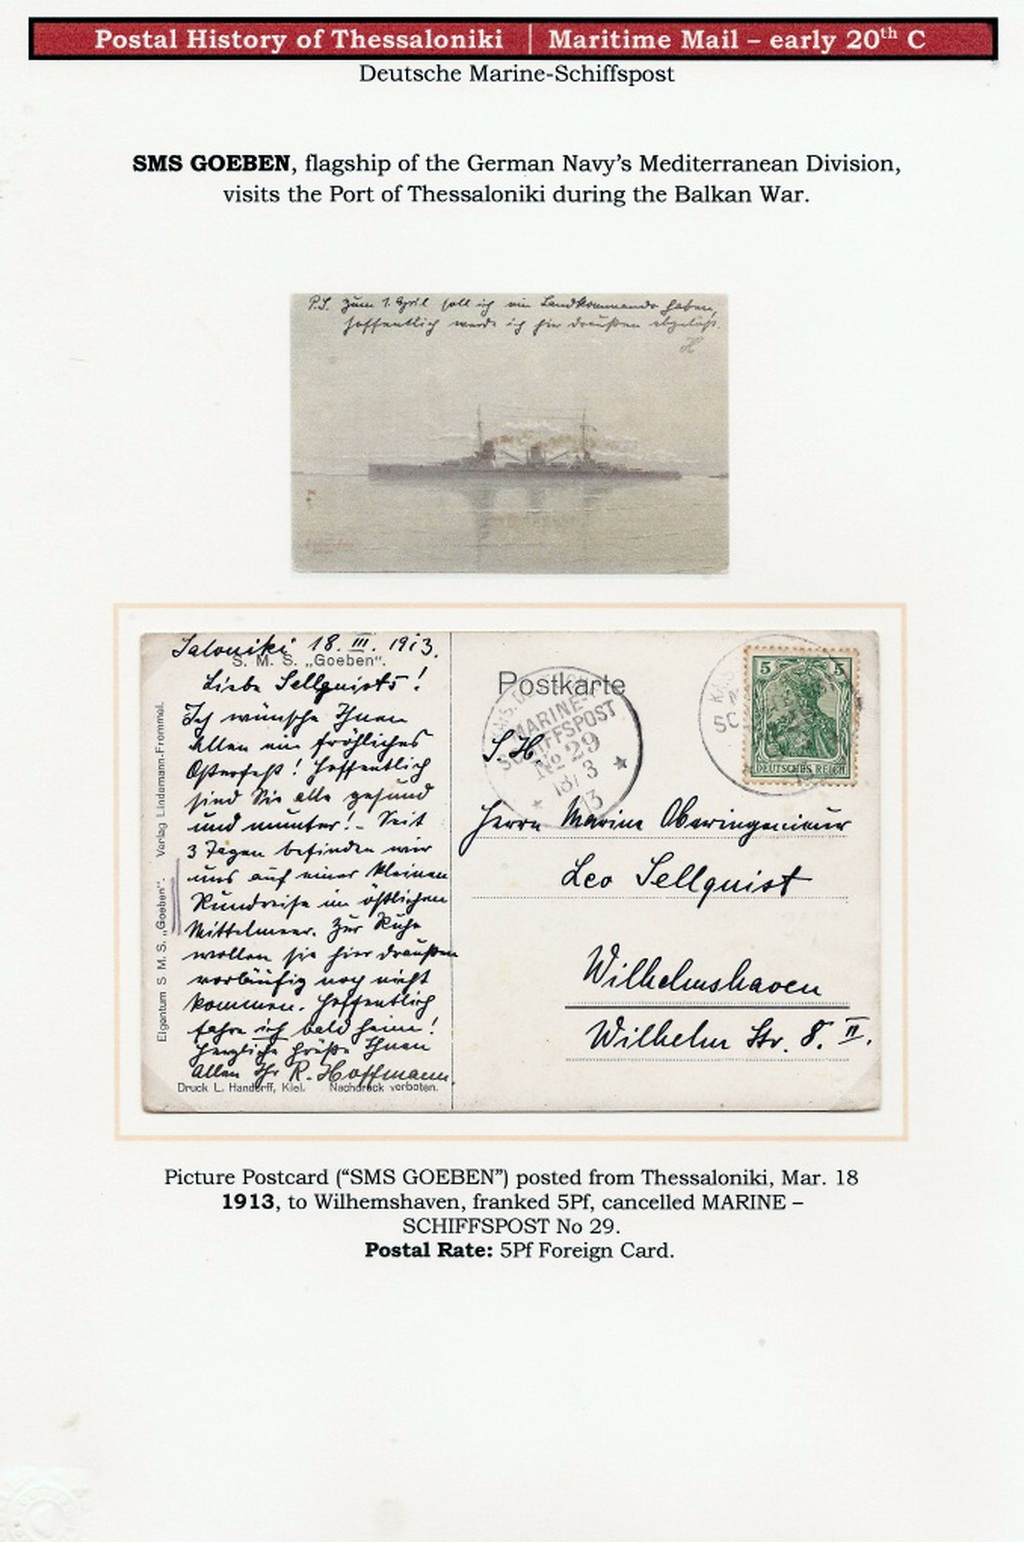 Postal History of Thessaloniki | Maritime Mail – early 20th C
Deutsche Marine-Schiffspost
SMS GOEBEN, flagship of the German Navy's Mediterranean Division,
visits the Port of Thessaloniki during the Balkan War.
P.S. Zum 1. April soll ich ein Landkommando haben,
hoffentlich werde ich hier draußen abgelöst.
H
Saloniki 18. III. 1913.
S. M. S. „Goeben".
Liebe Sellquists!
Ich wünsche Ihnen
Allen ein fröhliches
Osterfest! Hoffentlich
sind Sie alle gesund
und munter! - Seit
3 Tagen befinden wir
uns auf einer kleinen
Rundreise im östlichen
Mittelmeer. Zur Ruhe
wollen sie hier draußen
vorläufig noch nicht
kommen. Hoffentlich
fahre ich bald heim!
Herzliche Grüße Ihnen
Allen Ihr R. Hoffmann.
Druck L. Handorff, Kiel. Nachdruck verboten.
Eigentum S. M. S. „Goeben". Verlag Lindemann-Frommel.
Postkarte
MARINE-
SCHIFFSPOST
No 29
18/3
13
S. H.
5 5
DEUTSCHES REICH
Herrn Marine Oberingenieur
Leo Sellquist
Wilhelmshaven
Wilhelm Str. 8. II.
Picture Postcard ("SMS GOEBEN") posted from Thessaloniki, Mar. 18
1913, to Wilhemshaven, franked 5Pf, cancelled MARINE –
SCHIFFSPOST No 29.
Postal Rate: 5Pf Foreign Card.